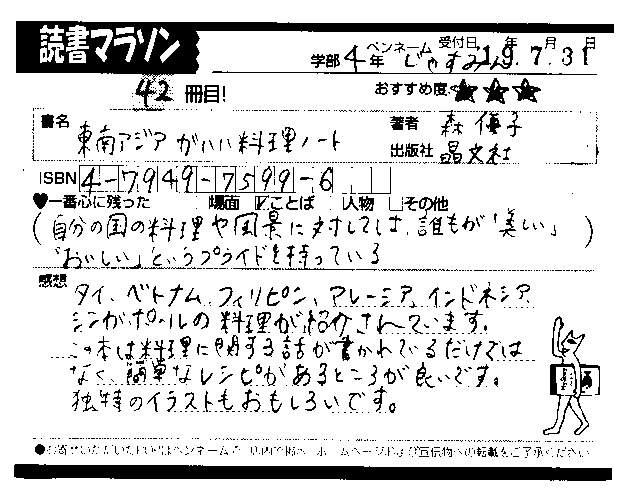 読書マラソン
学部 4年 ペンネーム じゃすみん 受付日 19年 7月 31日
42 冊目!
おすすめ度 ★★★
書名 東南アジア がいい料理ノート
著者 森 優子
出版社 晶文社
ISBN 4-7949-7599-6
♥一番心に残った □場面 ☑ことば □人物 □その他
(自分の国の料理や風景に対しては、誰もが「美しい」
「おいしい」というプライドを持っている)
感想
タイ、ベトナム、フィリピン、マレーシア、インドネシア
シンガポールの料理が紹介されています。
この本は料理に関する話が書かれているだけでは
なく、簡単なレシピがあるところが良いです。
独特のイラストもおもしろいです。
●お寄せいただいたPOPはペンネームで、店内で掲示、ホームページおよび宣伝物への転載をご了承ください